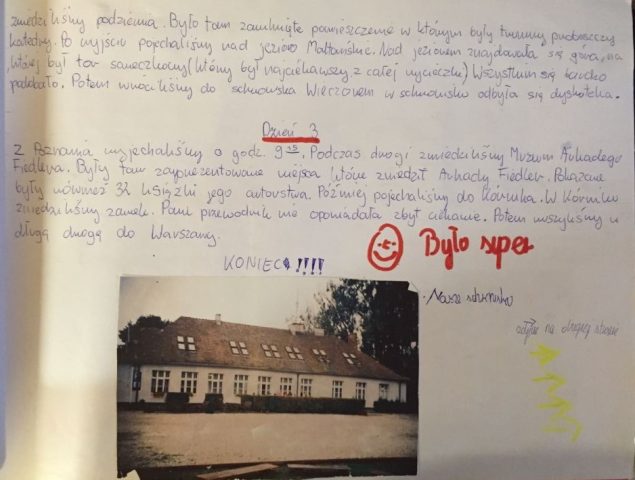 zwiedziliśmy podziemia. Było tam zamknięte pomieszczenie w którym były trumny proboszczy
katedry. Po wyjściu pojechaliśmy nad jezioro Maltańskie. Nad jeziorem znajdowała się góra, na
której był tor saneczkowy (który był najciekawszy z całej wycieczki) Wszystkim się bardzo
podobało. Potem wróciliśmy do schroniska Wieczorem w schronisku odbyła się dyskoteka.
Dzień 3
Z Poznania wyjechaliśmy o godz. 9 15. Podczas drogi zwiedziliśmy Muzeum Arkadego
Fiedlera. Były tam zaprezentowane miejsca które zwiedził Arkady Fiedler. Pokazane
były również 32 książki jego autorstwa. Później pojechaliśmy do Kórnika. W Kórniku
zwiedziliśmy zamek. Pani przewodnik nie opowiadała zbyt ciekawie. Potem ruszyliśmy w
długą drogę do Warszawy.
KONIEC!!!!
Było super
Nasze schronisko
na drugiej stronie